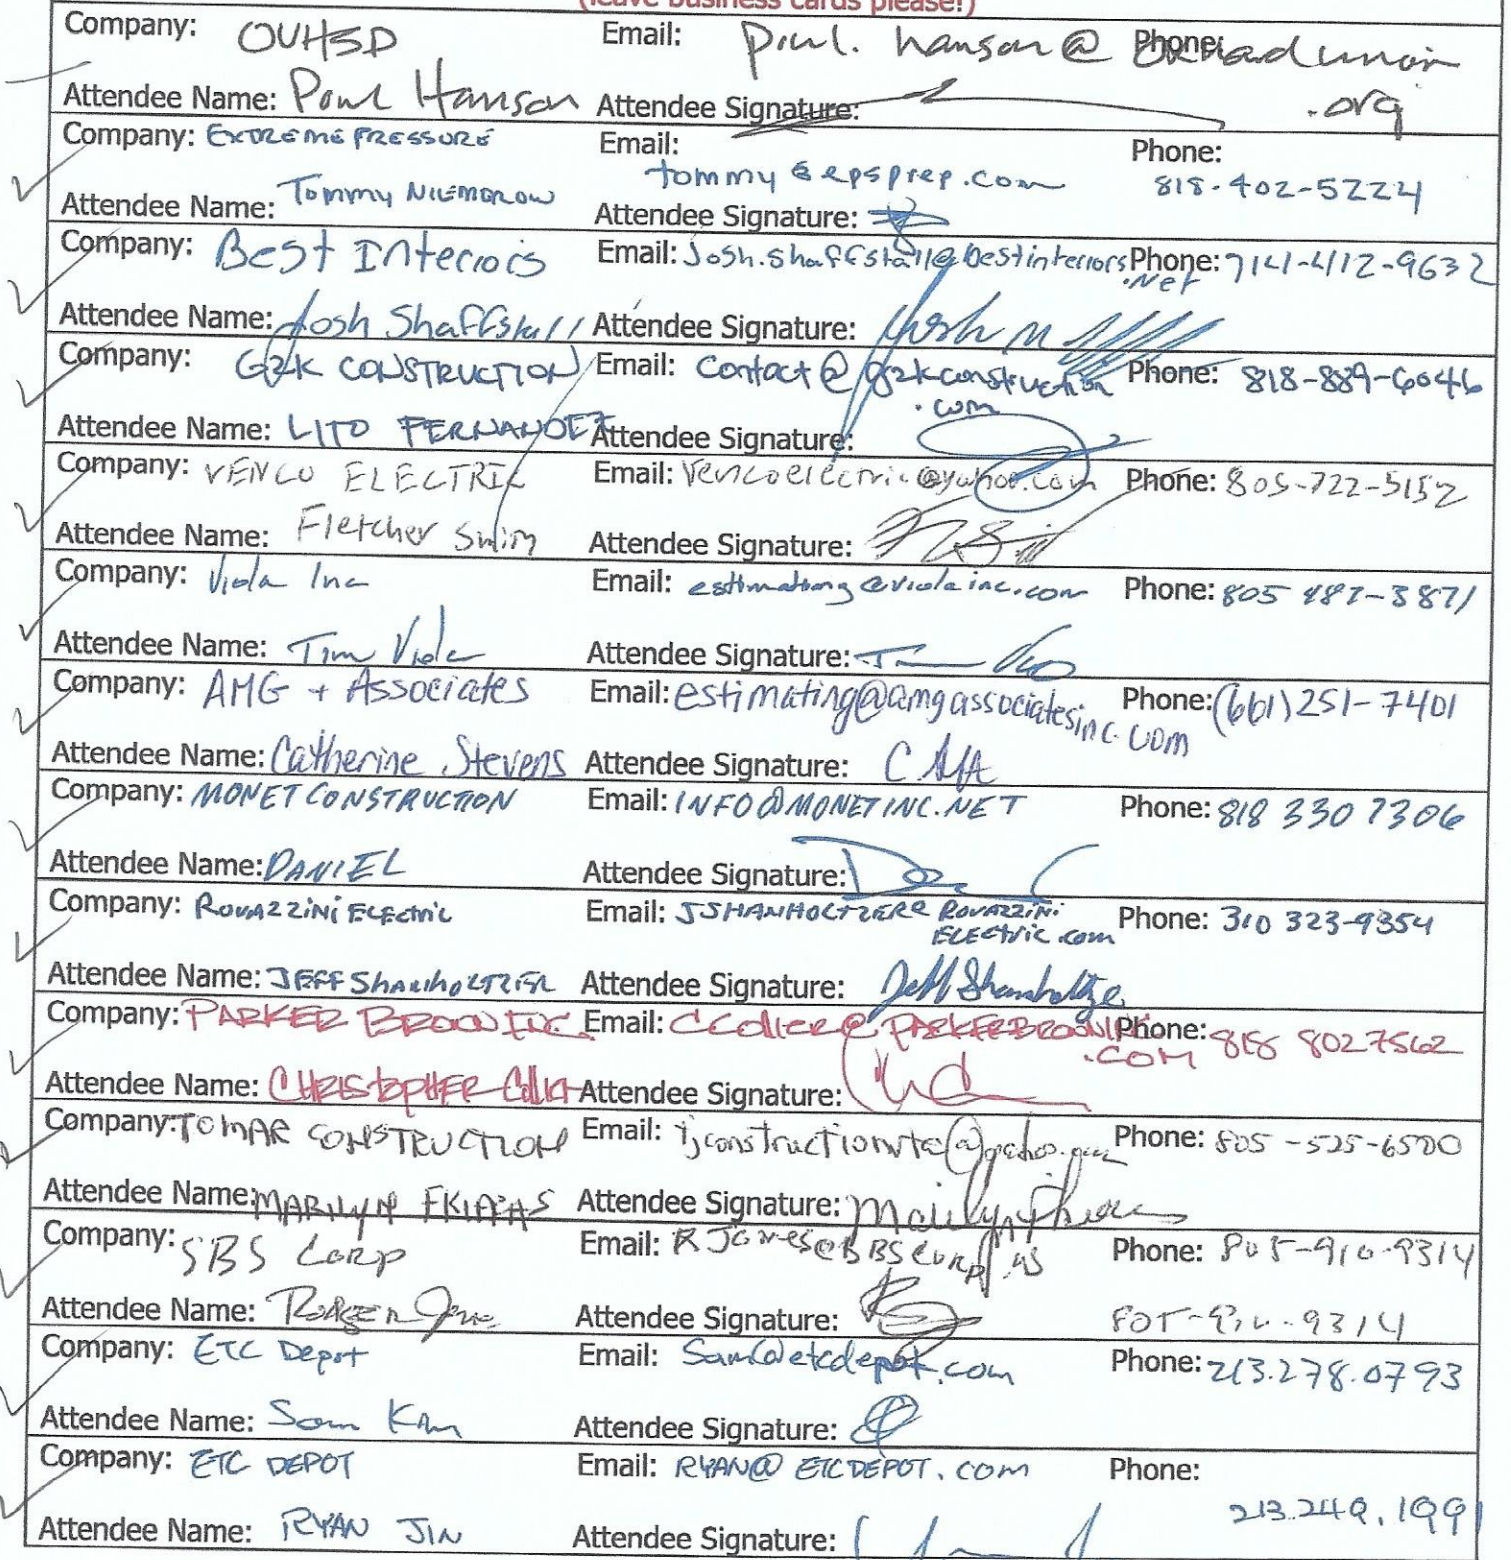 (leave business cards please!)
Company: OUHSD Email: paul.hanson@oxnardunion Phone:
.org
Attendee Name: Paul Hanson Attendee Signature:
Company: EXTREME PRESSURE Email: tommy@epsprep.com Phone: 818-402-5224
Attendee Name: Tommy Attendee Signature:
Company: Best Interiors Email: Josh.shaffstall@bestinteriors Phone: 714-412-9632
.Net
Attendee Name: Josh Shaffstall Attendee Signature:
Company: G2K CONSTRUCTION Email: Contact@g2kconstruction Phone: 818-889-6046
.com
Attendee Name: LITO FERNANDEZ Attendee Signature:
Company: VENCO ELECTRIC Email: Vencoelectric@yahoo.com Phone: 805-722-5152
Attendee Name: Fletcher Swim Attendee Signature:
Company: Viola Inc Email: estimating@violainc.com Phone: 805 487-3871
Attendee Name: Tim Viola Attendee Signature:
Company: AMG + Associates Email: estimating@amgassociatesinc.com Phone: (661) 251-7401
Attendee Name: Catherine Stevens Attendee Signature:
Company: MONET CONSTRUCTION Email: INFO@MONETINC.NET Phone: 818 330 7306
Attendee Name: DANIEL Attendee Signature:
Company: ROVAZZINI ELECTRIC Email: JSHANHOLTZER@ ROVAZZINI Phone: 310 323-9354
ELECTRIC.com
Attendee Name: JEFF SHANHOLTZER Attendee Signature: Jeff Shanholtzer
Company: PARKER BROWN INC. Email: CCollier@PARKERBROWNINC Phone: 818 8027562
.COM
Attendee Name: CHRISTOPHER Collier Attendee Signature:
Company: TOMAR CONSTRUCTION Email: Phone: 805-525-6500
Attendee Name: MARILYN Attendee Signature:
Company: SBS Corp Email: Phone: 805-910-9314
Attendee Name: Roger Attendee Signature: 805-910-9314
Company: ETC Depot Email: Sam@etcdepot.com Phone: 213.278.0793
Attendee Name: Sam Kim Attendee Signature:
Company: ETC DEPOT Email: RYAN@ETCDEPOT.COM Phone:
213.249.1991
Attendee Name: RYAN JIN Attendee Signature: